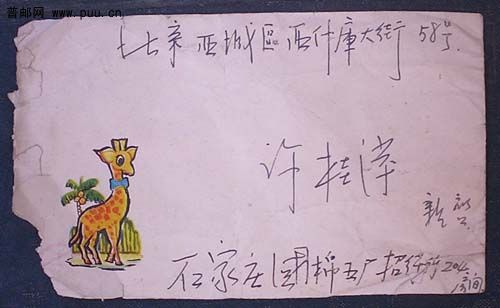 普邮网 www.puu.cn
北京西城區西什庫大街 58号
许桂萍
親啟
石家庄国棉五厂招待所 204
房间